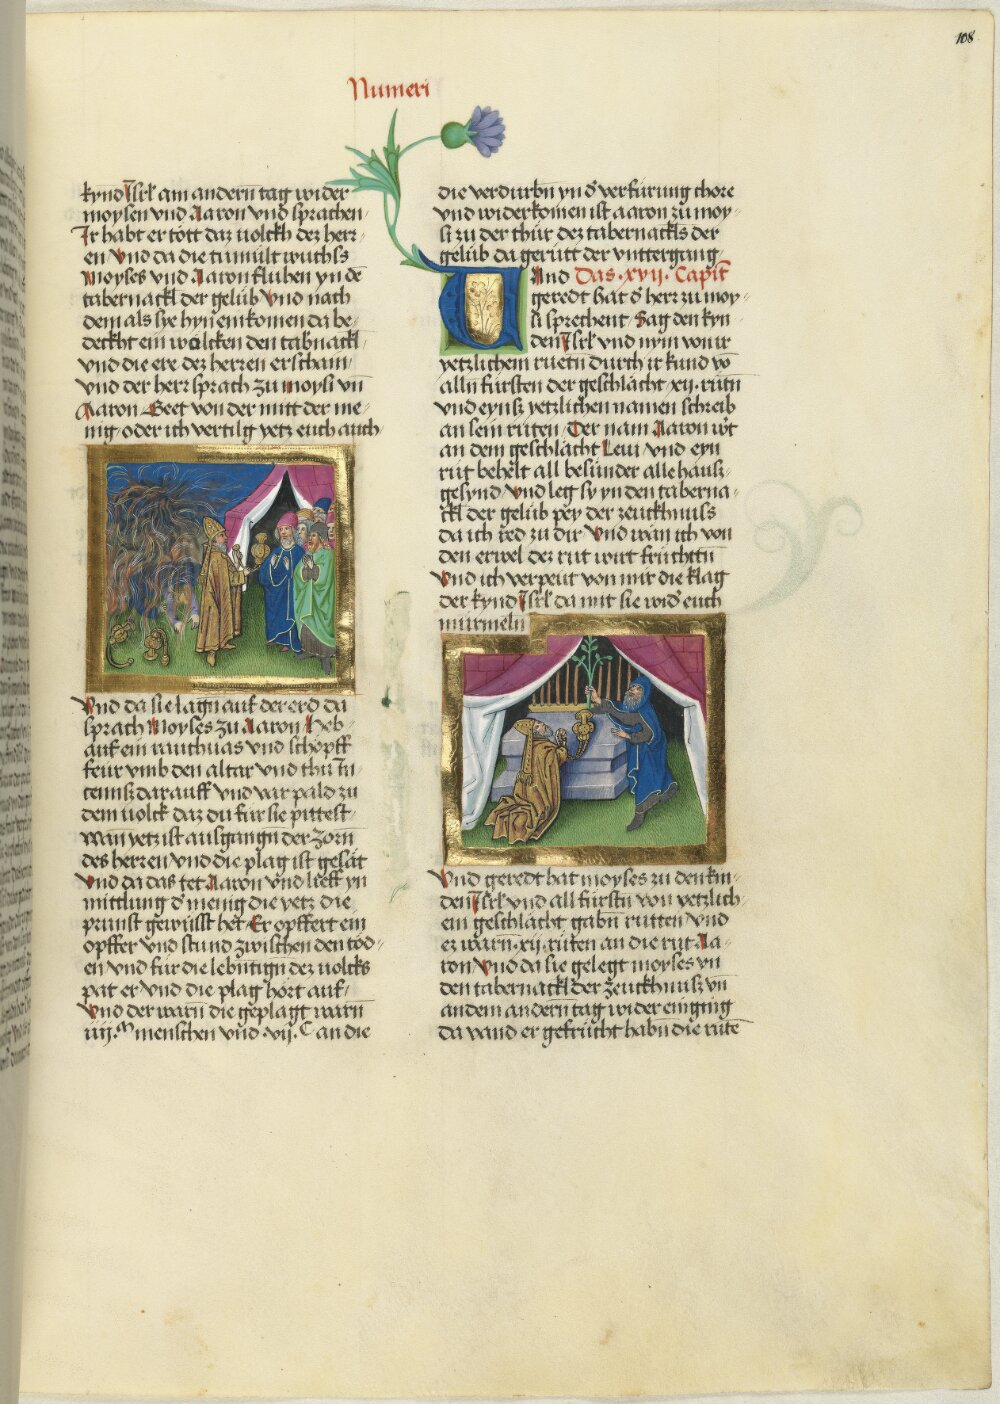 108
Numeri
kynd Isrl am andern tag wider
moysen vnd Aaron vnd sprachen
Ir habt ertott daz uolckh dez herr-
en Vnd da die tumult wuchss
Moyses vnd Aaron fluhen yn dē
tabernackl der gelüb Vnd nach
dem als sye hyn ein komen da be-
deckht ein wolcken den tabnackl
vnd die ere dez herren erscham
vnd der herr sprach zu moysi vn̄
Aaron Geet von der mitt der me-
nig oder ich vertilg yetz euch auch
Vnd da sie lagn auf der erd da
sprach Moyses zu Aaron Heb
auf ein rauchuas vnd schöpff
feur vmb den altar vnd thu
cennsz darauff vnd var pald zu
dem uolck daz du für sie pittest
wan yetz ist ausgangn der zorn
des herren vnd die plag ist
Vnd da das tet Aaron vnd lieff yn
mittlung d menig die yetz die
prunst gewüsst het Er opffert ein
opffer vnd stund zwischen den töd-
en vnd für die lebntign dez uolcks
pat er vnd die plag hört auf
Vnd der warn die geplagt warn
iiij M menschen vnd vij C an die
die verdurbn yn d verfürung chore
vnd widerkomen ist aaron zu moy-
si zu der thür dez tabernackls der
gelüb da gerutt der vnttergang
Vnd Das xvij Capit
geredt hat d herr zu moy-
si sprechent Sag den kyn-
den Isrl vnd nym von ir
yetzlichem ruetn durch ir kund vō
alln fürsten der geschlächt xij rütn
vnd eynsz yetzlichen namen schreib
an sein rüten Der nam Aaron
an dem geschlächt Leui vnd eyn
rüt behelt all besunder alle hausz-
gesynd Vnd leg sy yn den taberna-
ckl der gelüb pey der zeuckhnuss
da ich red zu dir Vnd wan ich von
den erwel dez rüt wirt früchttn
Vnd ich verpeut von mir die klag
der kynd Isrl da mit sie wid euch
murmeln
Vnd geredt hat moyses zu den kin-
den Isrl vnd all fürstn von yetzlich-
em geschlächt gabn rütten vnd
ez warn xij rüten an die rüt Aa-
ron Vnd da sie gelegt moyses yn
den tabernackl der zeuckhnusz vn̄
an dem andern tag wider einging
da vand er gefrücht habn die rütē